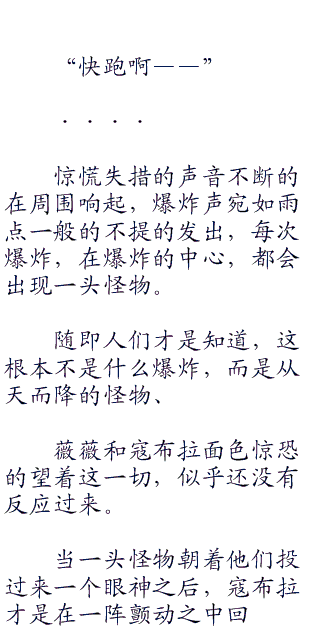 “快跑啊——”
．．．．
惊慌失措的声音不断的
在周围响起，爆炸声宛如雨
点一般的不提的发出，每次
爆炸，在爆炸的中心，都会
出现一头怪物。
随即人们才是知道，这
根本不是什么爆炸，而是从
天而降的怪物、
薇薇和寇布拉面色惊恐
的望着这一切，似乎还没有
反应过来。
当一头怪物朝着他们投
过来一个眼神之后，寇布拉
才是在一阵颤动之中回